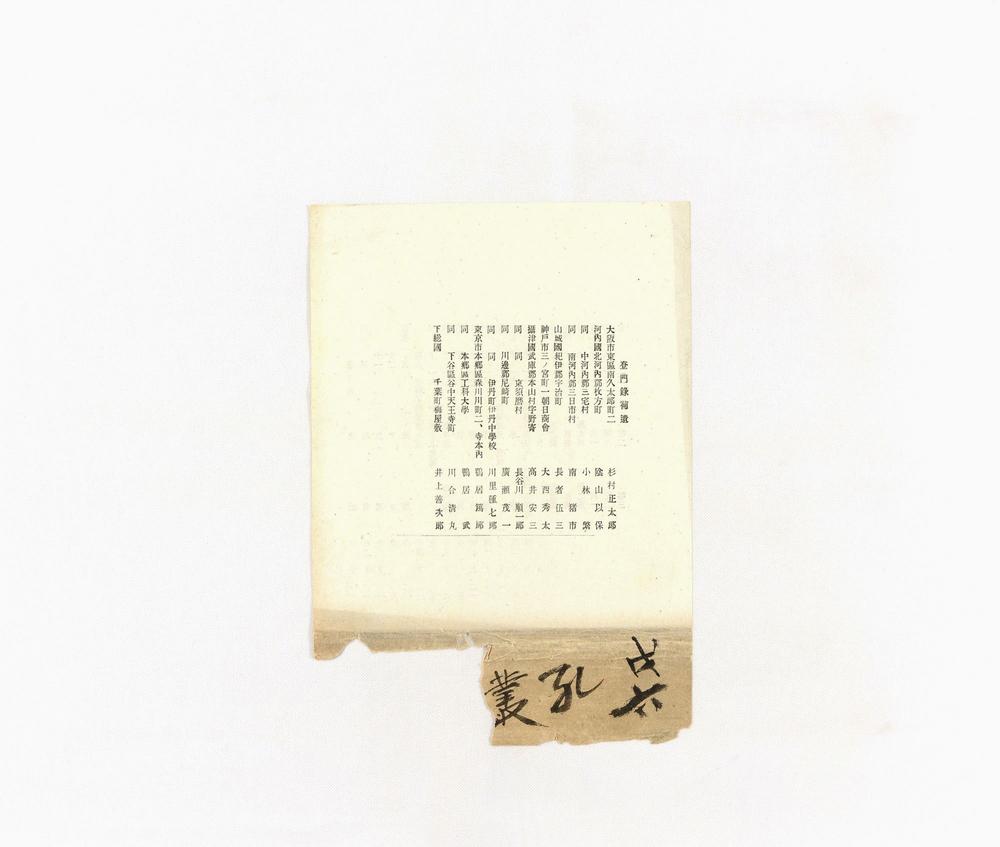 登門錄補遺
大阪市東區南久太郎町二 杉村正太郎
河內國北河內郡枚方町 陰山以保
同 中河內郡三宅村 小林繁
同 南河內郡三日市村 南猪市
山城國紀伊郡宇治町 長者伍三
神戶市三ノ宮町一朝日商會 大西秀太
攝津國武庫郡本山村字野寄 高井安三
同 同 東須磨村 長谷川順一郎
同 川邊郡尼崎町 廣瀨茂一
同 同 伊丹町伊丹中學校 川里種七郎
東京市本鄕區森川町二、寺本內 鴨居篤郎
同 本鄕區工科大學 鴨居武
同 下谷區谷中天王寺町 川合淸丸
下總國 千葉町梅屋敷 井上善次郎
孔
叢